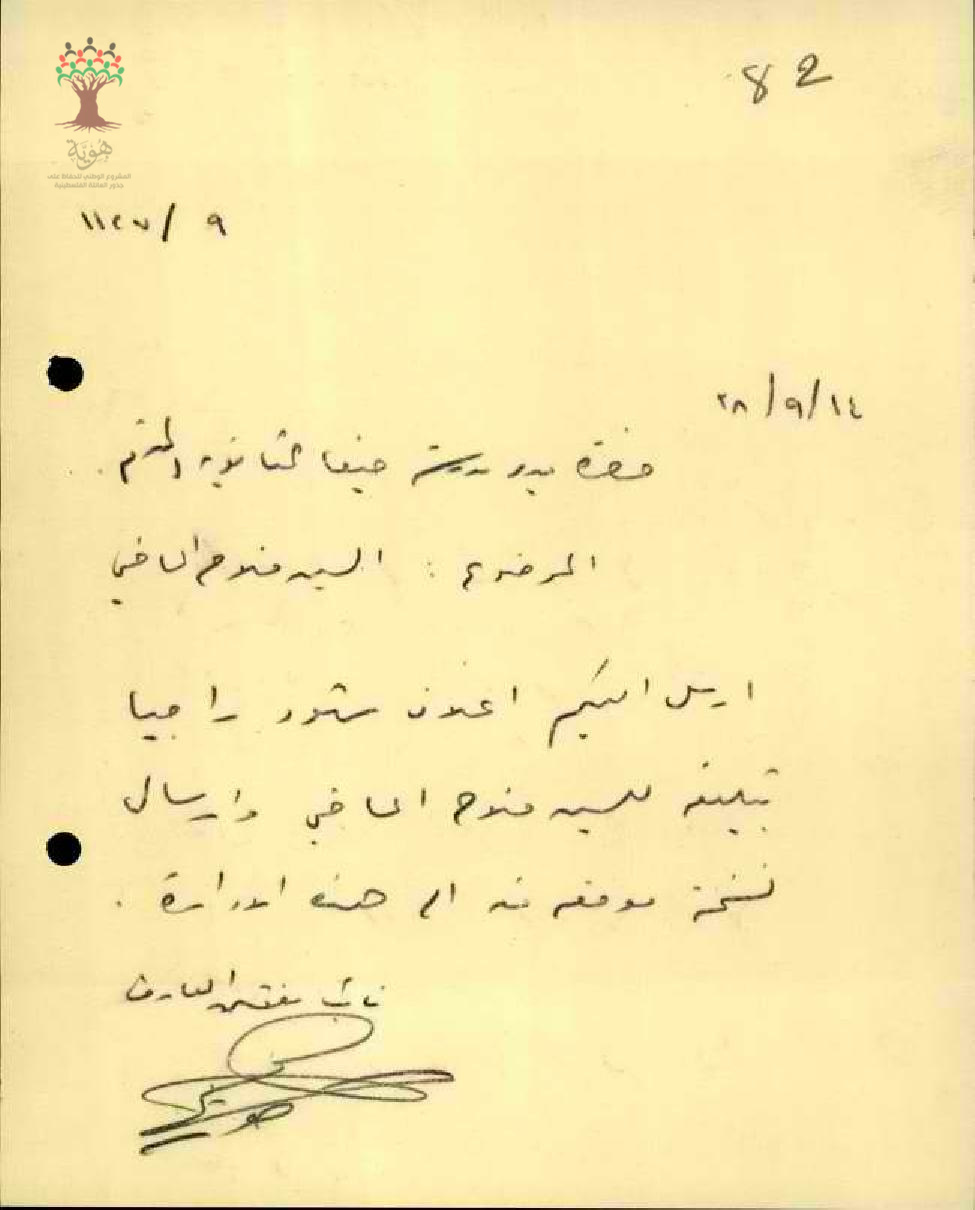 82
هوية
المشروع الوطني للحفاظ على
جذور العائلة الفلسطينية
٩ /١١٢٧
٢٨/٩/١٤
حضرة مدير مدرسة حيفا الثانوية المحترم
الموضوع : السيد فلاح الماضي
ارسل اليكم اعلان راجيا
تبليغه للسيد فلاح الماضي وارسال
نسخة موقعه منه الى هذه الادارة .
نائب مفتش المعارف